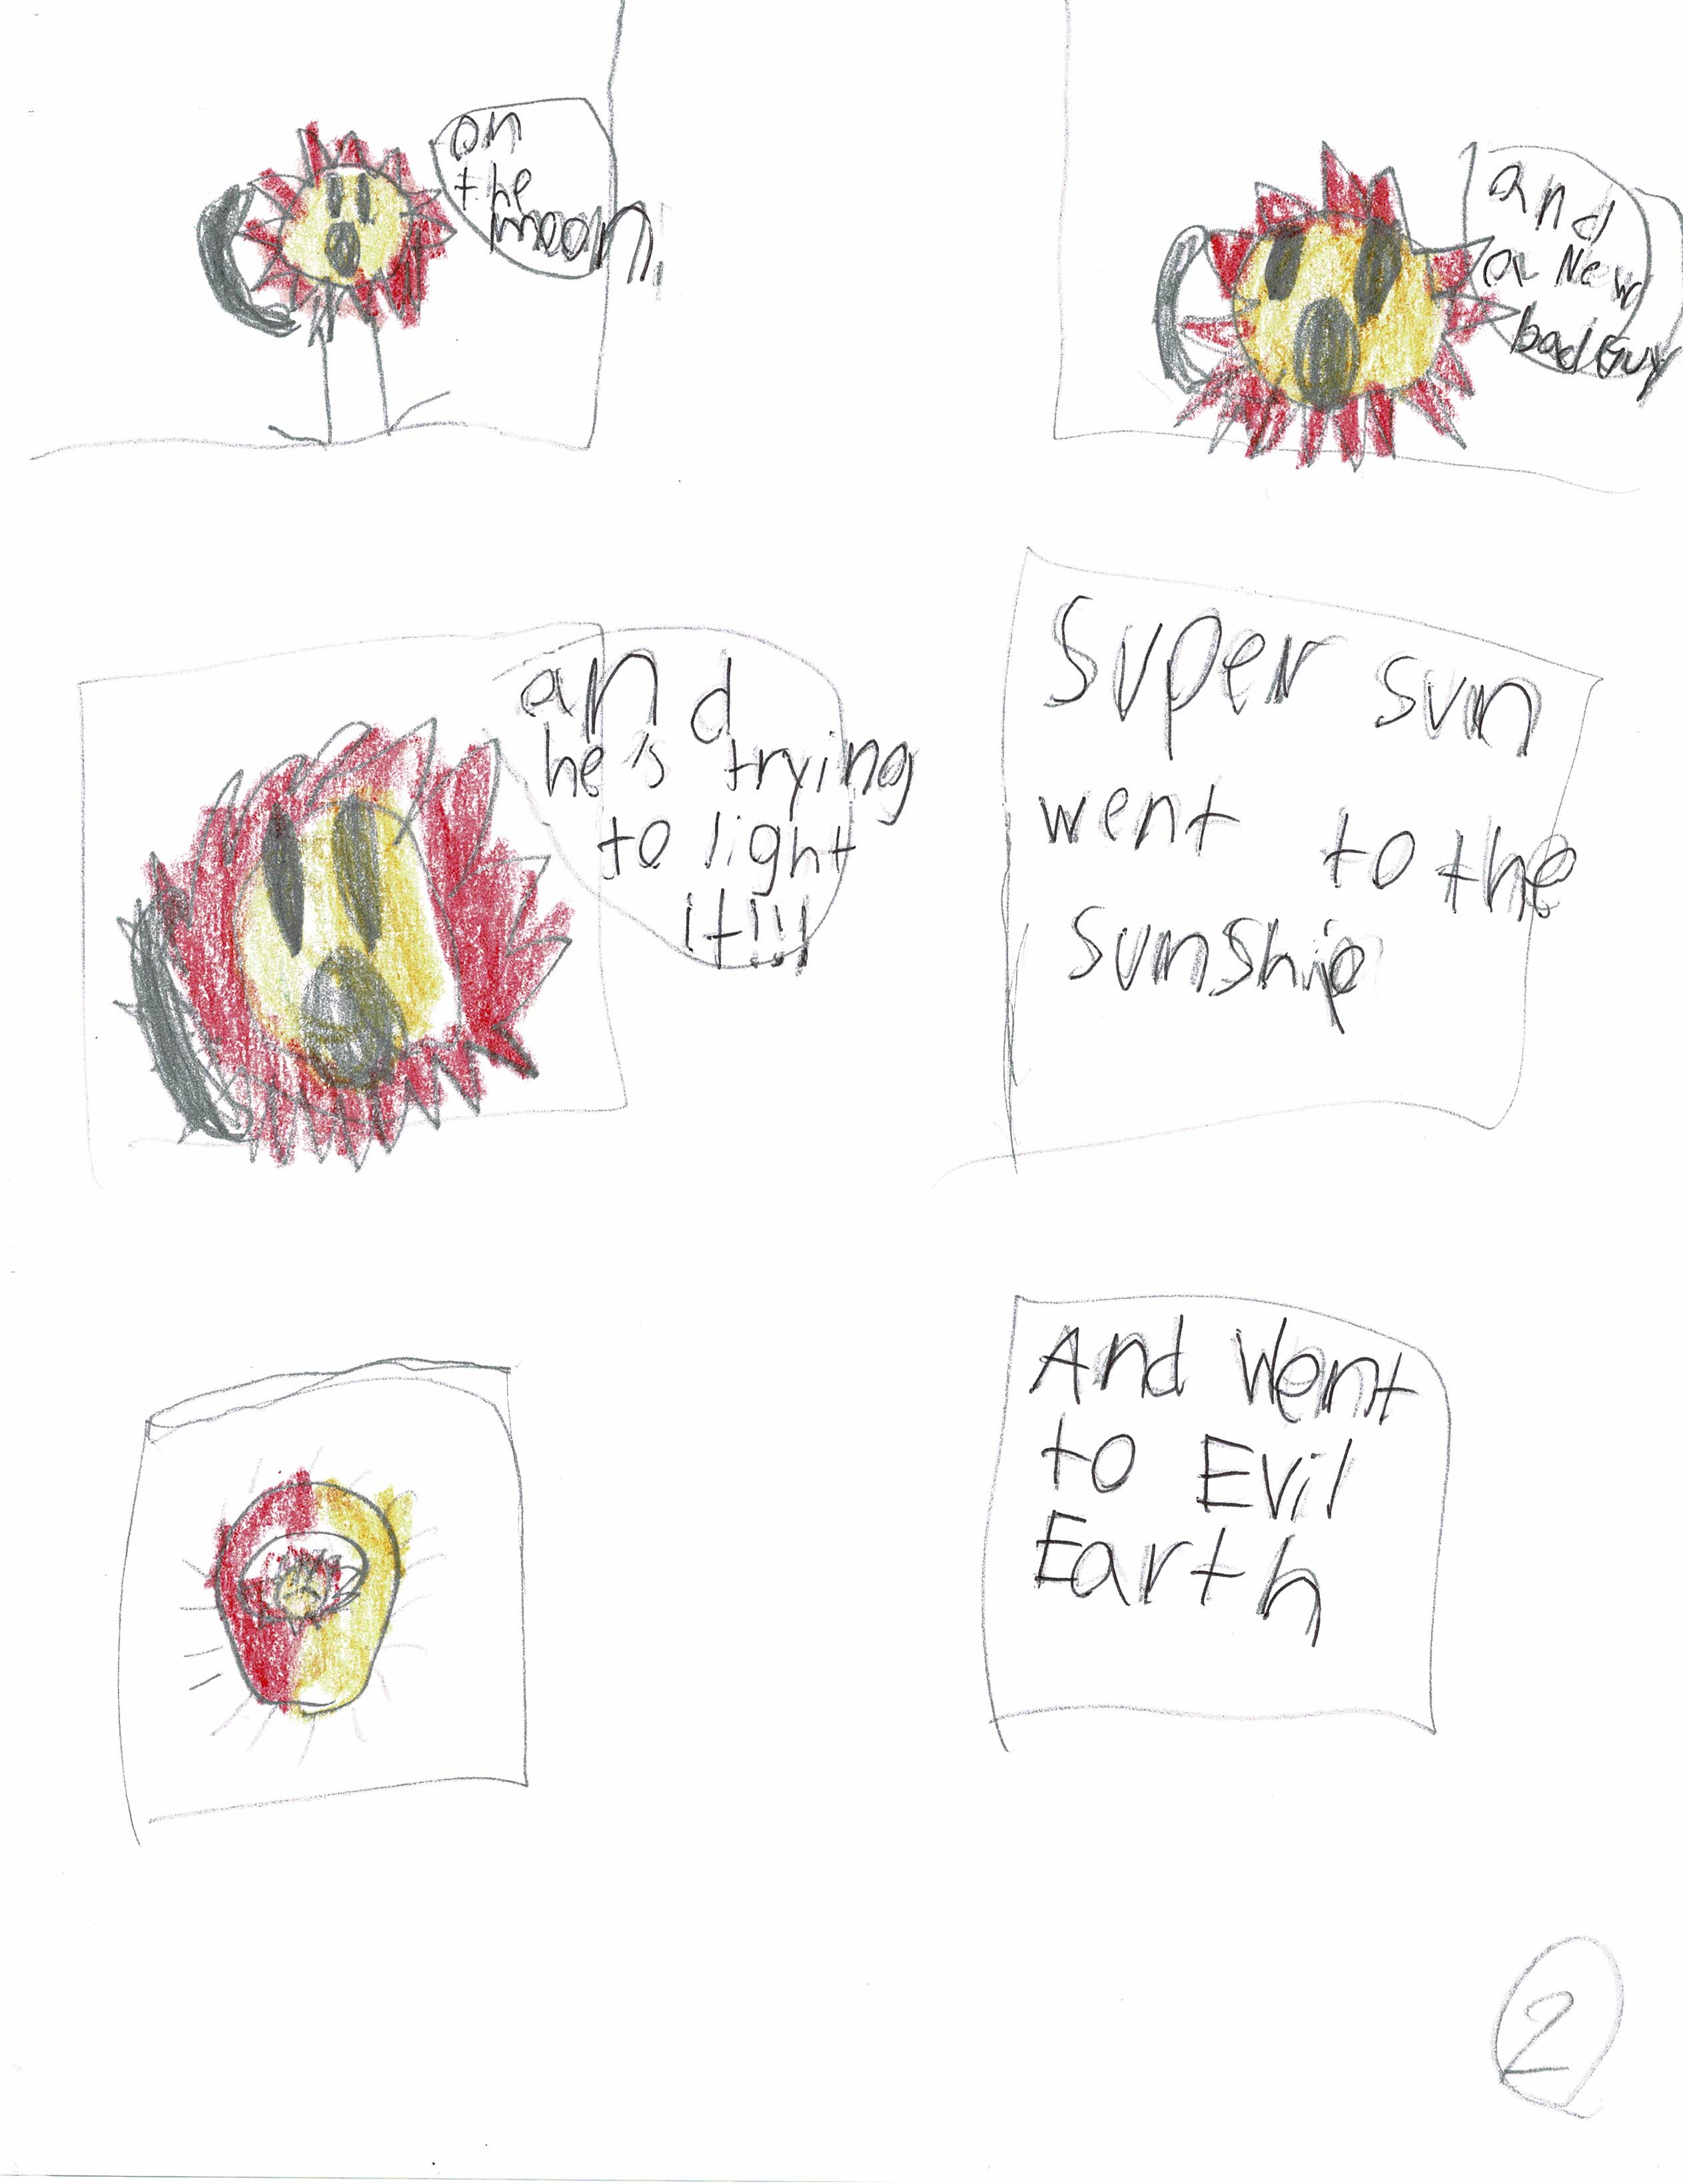 on
the
moon,
and
a New
bad Guy
and
he's trying
to light
it!!!
Super sun
went to the
Sunship
And Went
to Evil
Earth
2